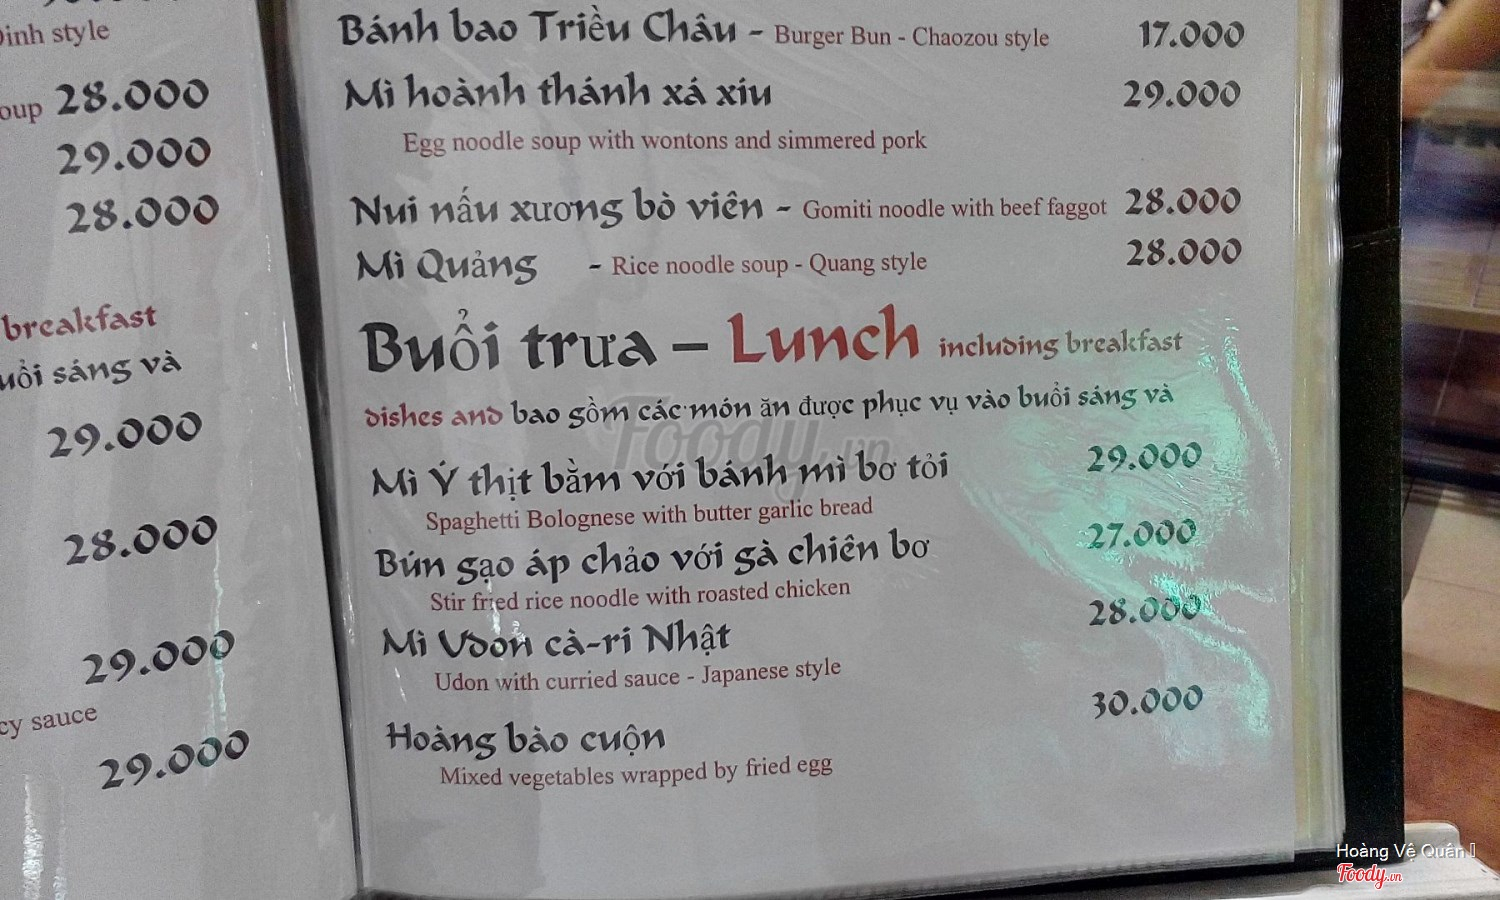 Dinh style
oup 28.000
29.000
28.000
breakfast
uổi sáng và
29.000
28.000
29.000
cy sauce
29.000
Bánh bao Triều Châu - Burger Bun - Chaozou style 17.000
Mì hoành thánh xá xíu 29.000
Egg noodle soup with wontons and simmered pork
Nui nấu xương bò viên - Gomiti noodle with beef faggot 28.000
Mì Quảng - Rice noodle soup - Quang style 28.000
Buổi trưa – Lunch including breakfast
dishes and bao gồm các món ăn được phục vụ vào buổi sáng và
Mì Ý thịt bằm với bánh mì bơ tỏi 29.000
Spaghetti Bolognese with butter garlic bread
Bún gạo áp chảo với gà chiên bơ 27.000
Stir fried rice noodle with roasted chicken
Mì Udon cà-ri Nhật 28.000
Udon with curried sauce - Japanese style
Hoàng bào cuộn 30.000
Mixed vegetables wrapped by fried egg
Foody.vn
Hoàng Vệ Quán
Foody.vn